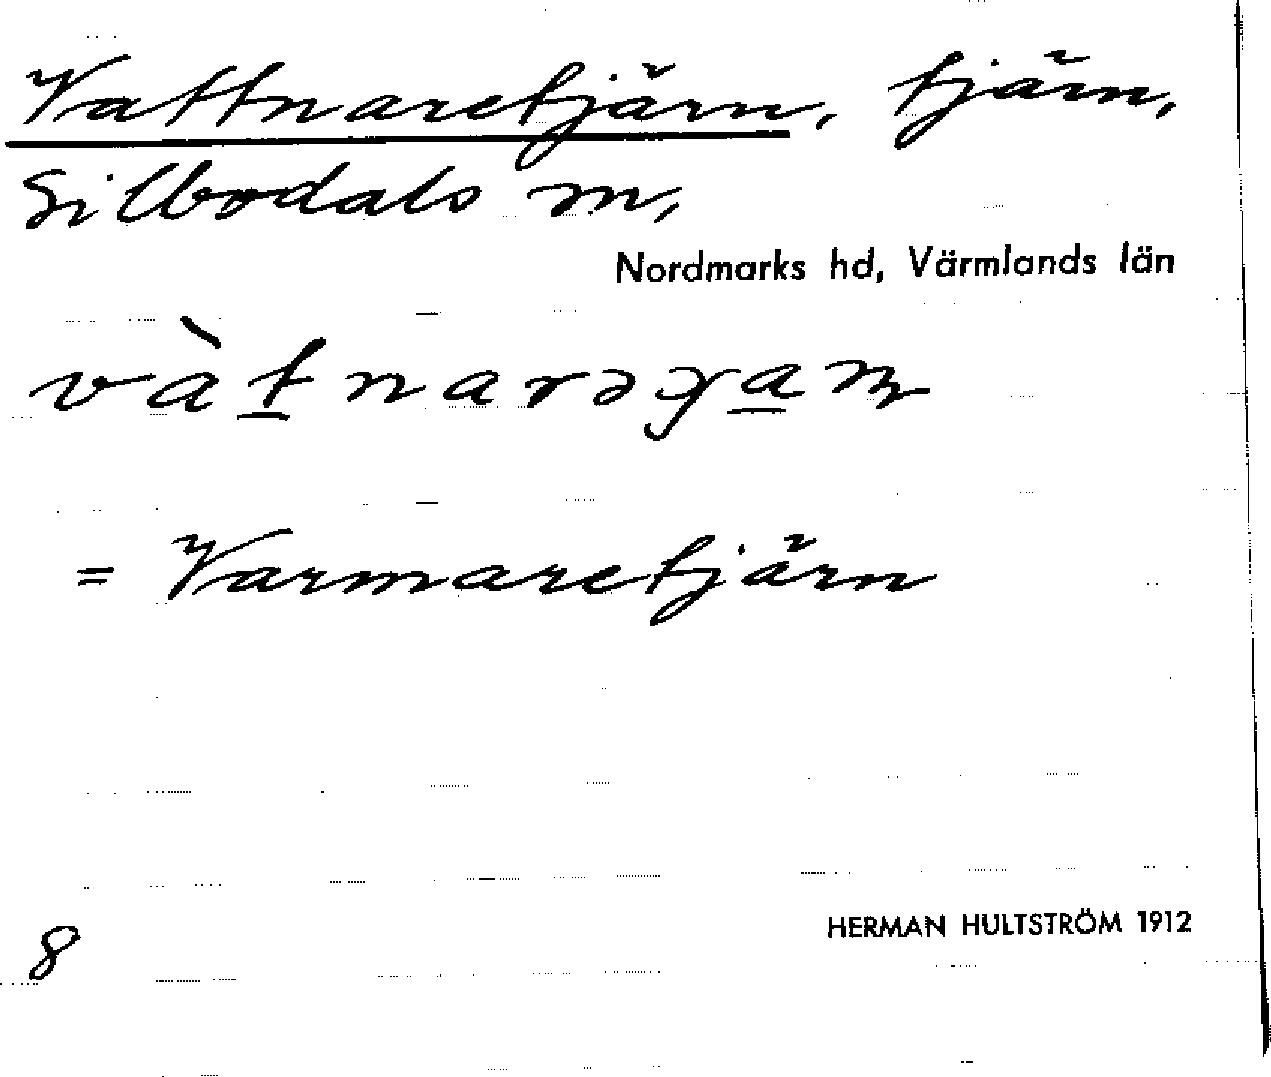 Vattnaretjärn, tjärn,
Silbodals sn,
Nordmarks hd, Värmlands län
= Varmaretjärn
8
HERMAN HULTSTRÖM 1912